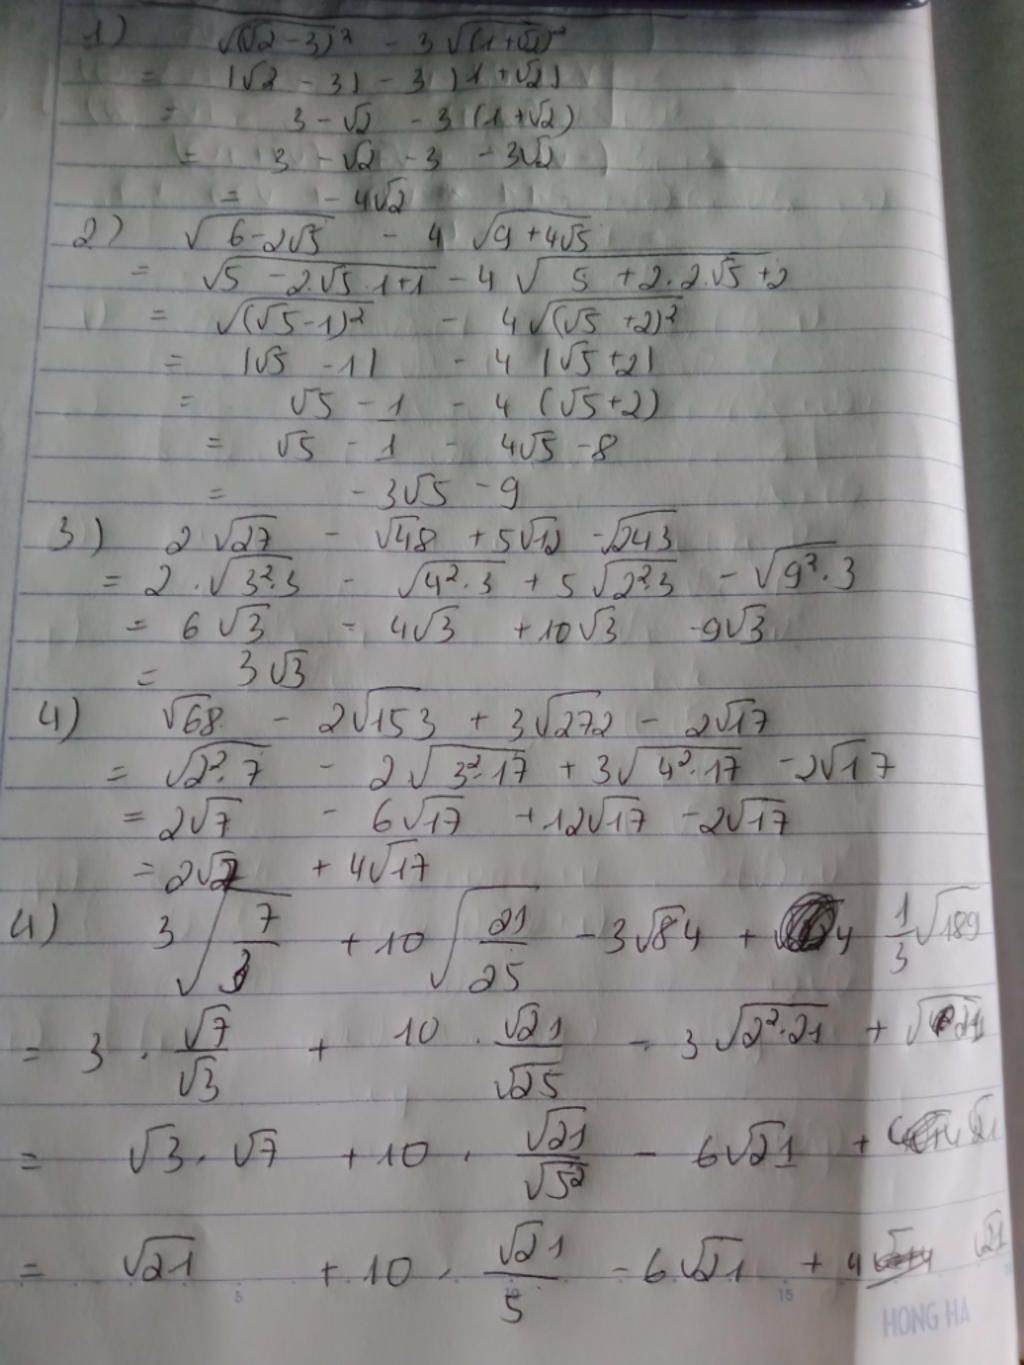 1) √(√2 - 3)² - 3√(1+√2)²
= |√2 - 3| - 3|1+√2|
= 3 - √2 - 3(1+√2)
= 3 - √2 - 3 - 3√2
= - 4√2
2) √6-2√5 - 4 √9+4√5
= √5 - 2.√5.1+1 - 4 √5 + 2.2.√5 +2
= √(√5-1)² - 4√(√5 +2)²
= |√5 - 1| - 4 |√5+2|
= √5 - 1 - 4 (√5+2)
= √5 - 1 - 4√5 - 8
= - 3√5 - 9
3) 2√27 - √48 + 5√12 - √243
= 2.√3².3 - √4².3 + 5√2².3 - √9².3
= 6√3 - 4√3 + 10√3 - 9√3
= 3√3
4) √68 - 2√153 + 3√272 - 2√17
= √2².7 - 2√3².17 + 3√4².17 - 2√17
= 2√7 - 6√17 + 12√17 - 2√17
= 2√7 + 4√17
4) 3√7/3 + 10√21/25 - 3√84 + 4 1/3√189
= 3.√7/√3 + 10.√21/√25 - 3√2².21 +
= √3.√7 + 10.√21/√5² - 6√21 + √21
= √21 + 10.√21/5 - 6√21 + 4 √21
5 10 15
HONG HA